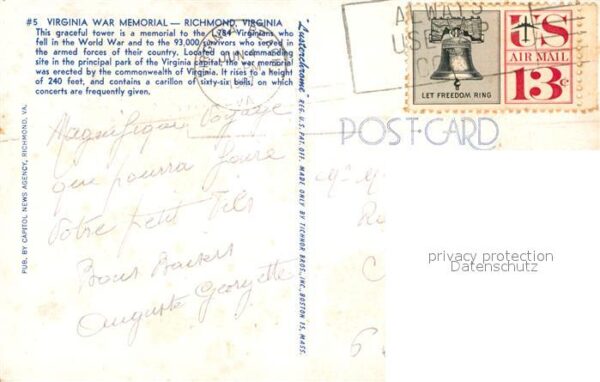 #5 VIRGINIA WAR MEMORIAL — RICHMOND, VIRGINIA
This graceful tower is a memorial to the 1,784 Virginians who
fell in the World War and to the 93,000 survivors who served in the
armed forces of their country. Located on a commanding
site in the principal park of the Virginia capital, the war memorial
was erected by the commonwealth of Virginia. It rises to a height
of 240 feet, and contains a carillon of sixty-six bells, on
which concerts are frequently given.
PUB. BY CAPITOL NEWS AGENCY, RICHMOND, VA.
"Lusterchrome" REG. U.S. PAT. OFF. MADE ONLY BY TICHNOR BROS., INC., BOSTON 15, MASS.
JUN
ALWAYS
USE
LET FREEDOM RING
US
AIR MAIL
13c
POST CARD
Magnifique Voyage
que pourra faire
Votre petit fils
Bons Baisers
Auguste Georgette
privacy protection
Datenschutz